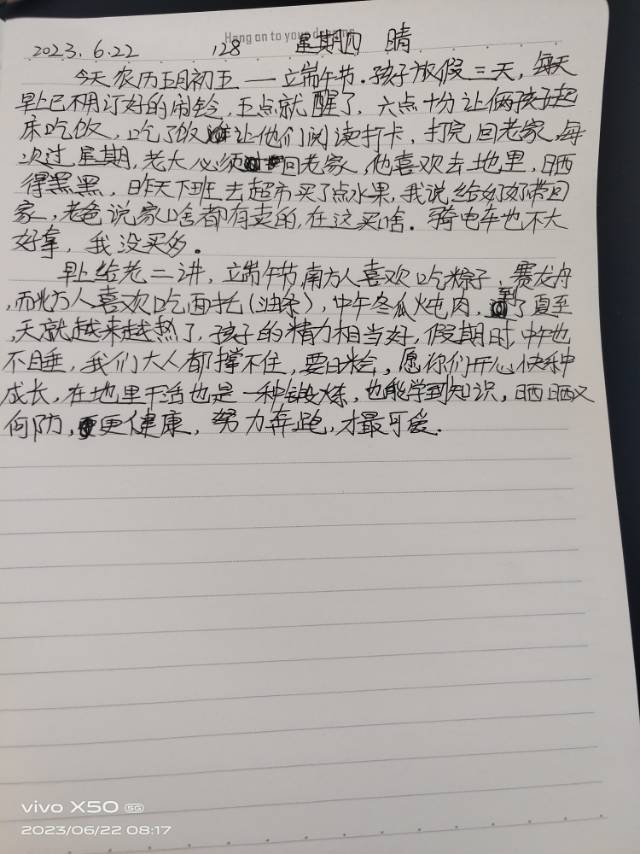 Hang on to your dreams
2023.6.22 128 星期四 晴
今天农历五月初五一立端午节.孩子放假三天,每天
早上已不用订好的闹铃,五点就醒了,六点十分让俩孩子起
床吃饭,吃了饭让他们阅读打卡,打完回老家,每
次过星期,老大必须回老家,他喜欢去地里,晒
得黑黑,昨天下班去超市买了点水果,我说给奶奶带回
家,老爸说家啥都有卖的,在这买啥.骑电车也不大
好拿,我没买多.
早上给老二讲,立端午节,南方人喜欢吃粽子,赛龙舟
,而北方人喜欢吃面托(油条),中午冬瓜炖肉,到了夏至
,天就越来越热了,孩子的精力相当好,假期时,中午也
不睡,我们大人都撑不住,要眯会,愿你们开心快乐种
成长,在地里干活也是一种锻炼,也能学到知识,晒晒又
何防,更健康,努力奔跑,才最可爱.
vivo X50 5G
2023/06/22 08:17